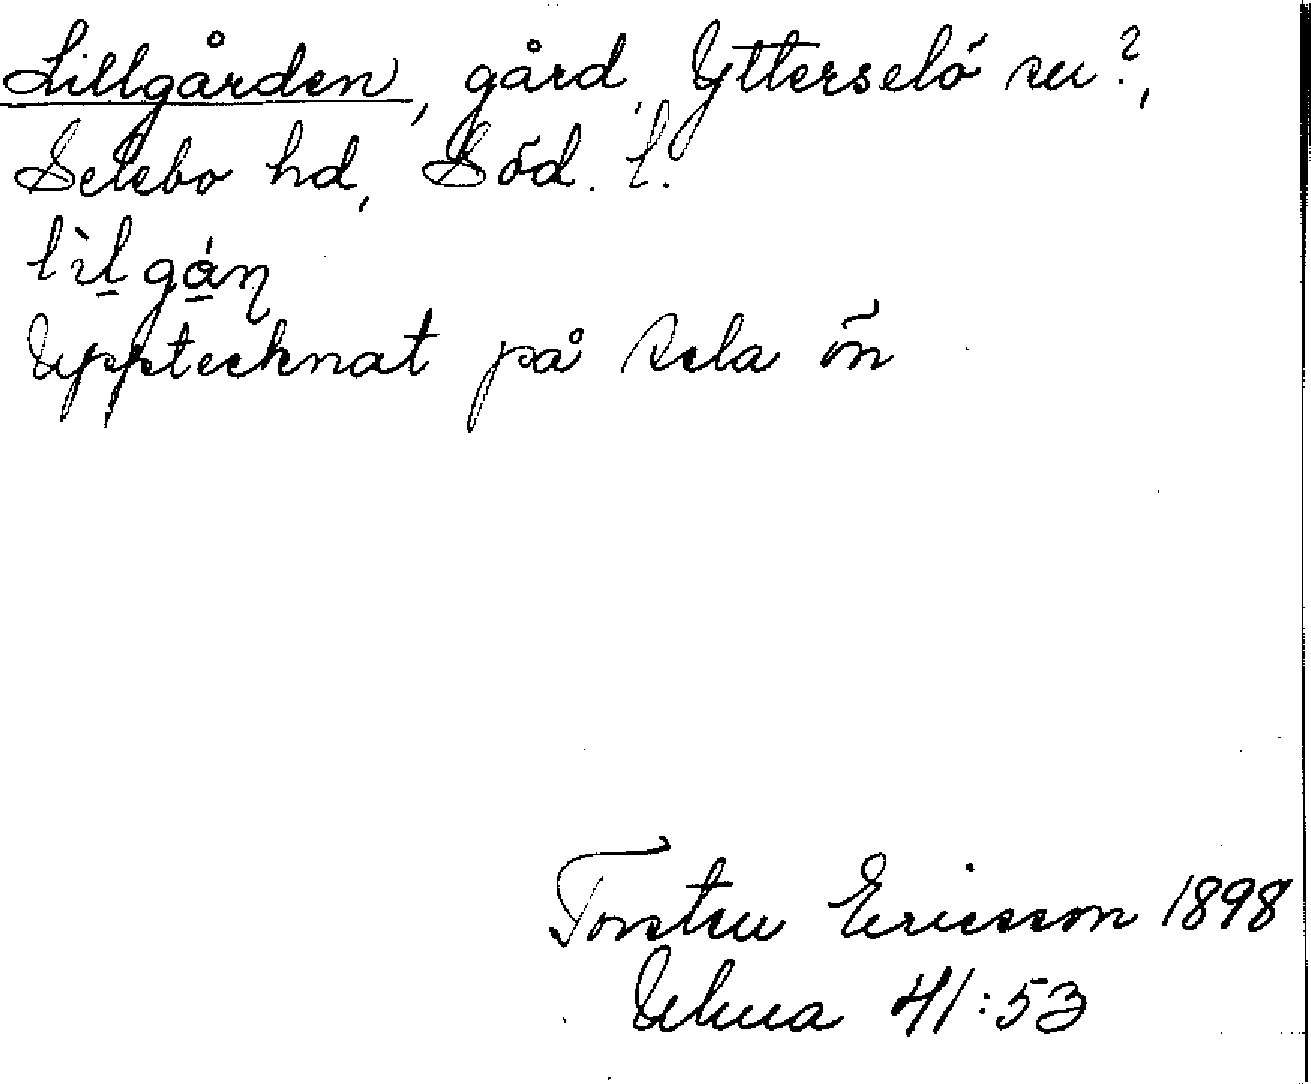 Lillgården, gård, Ytterselö sn?,
Selebo hd, Söd. l.
lìlgán
Upptecknat på Sela ön
Torsten Ericsson 1898
Ulma 41:53